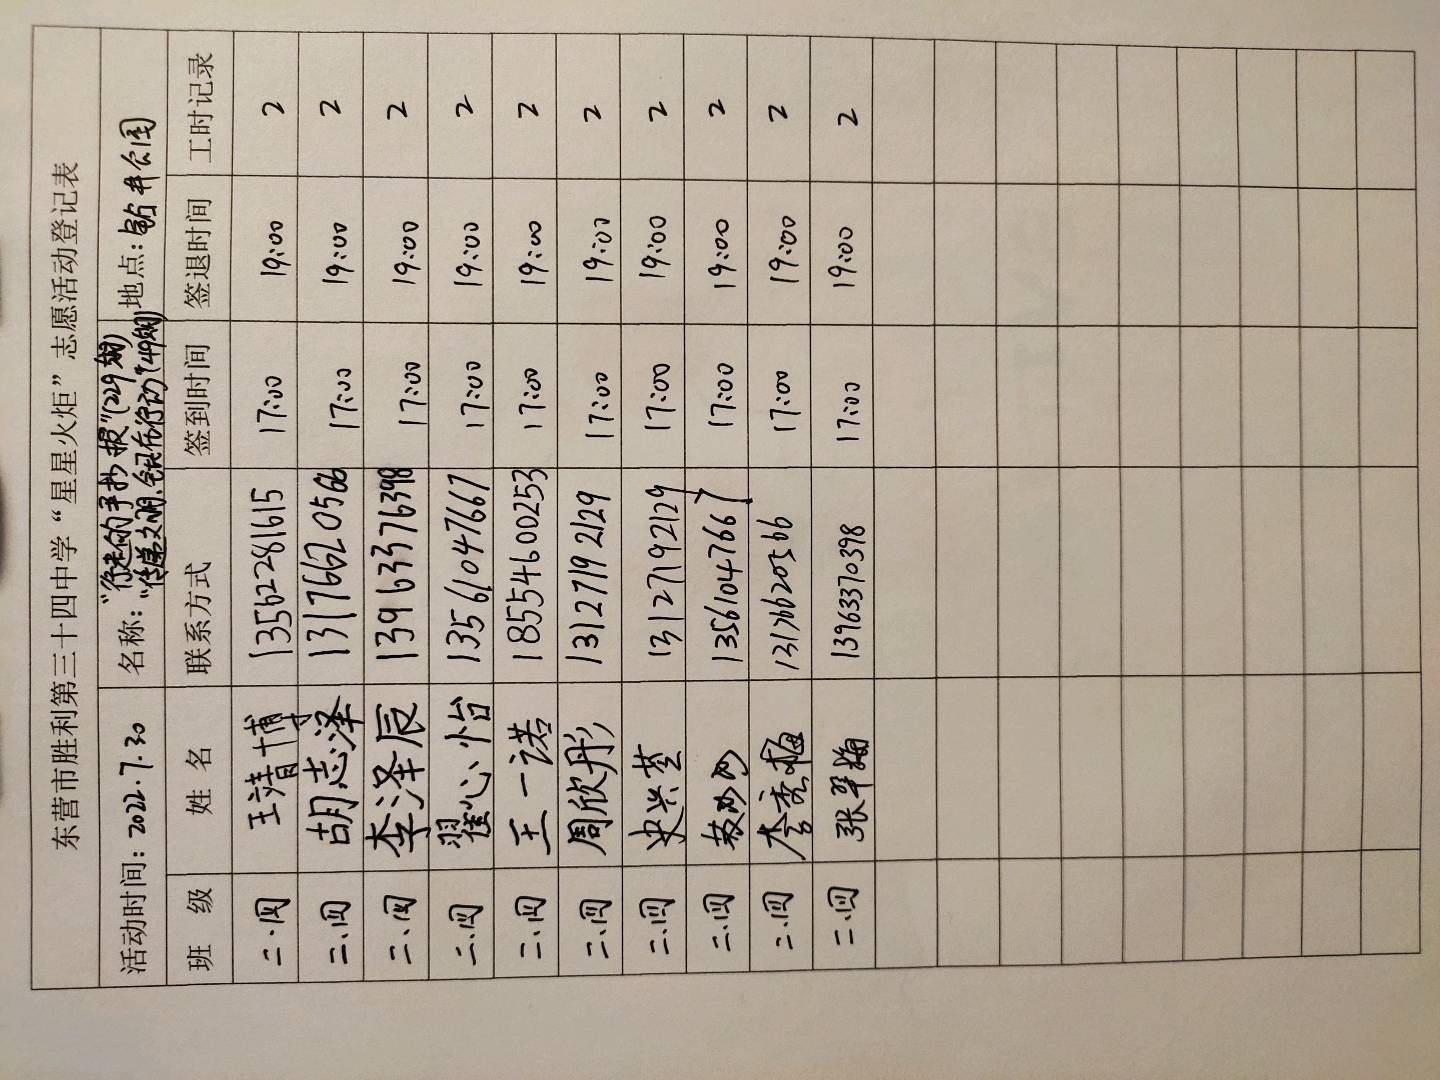 东营市胜利第三十四中学“星星火炬”志愿活动登记表
活动时间：2022.7.30 名称：“行走的手抄报”(229期) “传递文明,全民在行动”(49期) 地点：钻井公园
班 级 姓 名 联系方式 签到时间 签退时间 工时记录
二.四 王清博 13562281615 17:00 19:00 2
二.四 胡志泽 13176620566 17:00 19:00 2
二.四 李泽辰 13963376398 17:00 19:00 2
二.四 翟心怡 13561047667 17:00 19:00 2
二.四 王一诺 18554600253 17:00 19:00 2
二.四 周欣彤 13127192129 17:00 19:00 2
二.四 史兴芝 13127192129 17:00 19:00 2
二.四 13561047667 17:00 19:00 2
二.四 李秀梅 13176620566 17:00 19:00 2
二.四 张翠翰 13963370398 17:00 19:00 2